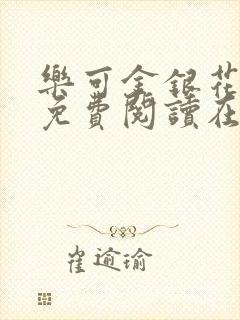 樂可金銀花
免費閱讀在
崔逾瑜